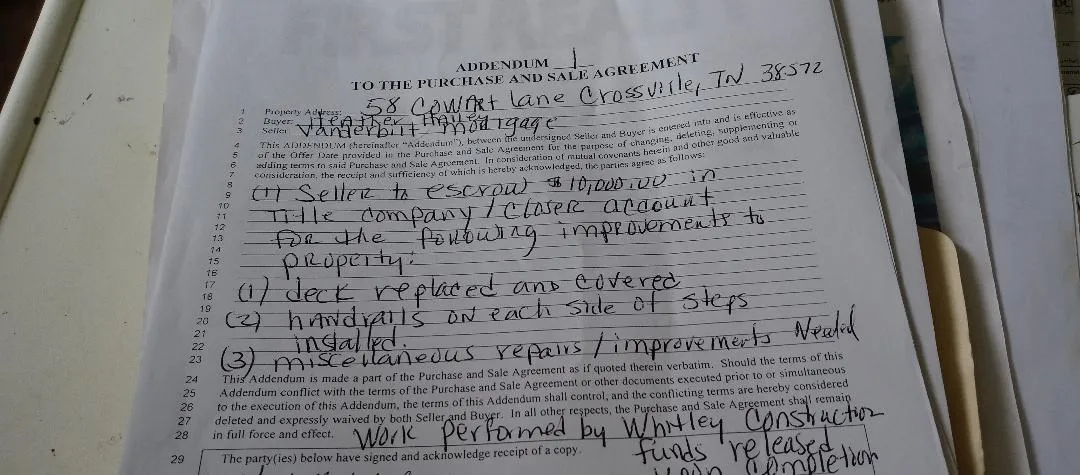 ADDENDUM 1
TO THE PURCHASE AND SALE AGREEMENT
1 Property Address: 58 Cowart Lane Crossville, TN 38572
2 Buyer: Heather
3 Seller: Vanderbilt Mortgage
4 This ADDENDUM (hereinafter "Addendum"), between the undersigned Seller and Buyer is entered into and is effective as
5 of the Offer Date provided in the Purchase and Sale Agreement for the purpose of changing, deleting, supplementing or
6 adding terms to said Purchase and Sale Agreement. In consideration of mutual covenants herein and other good and valuable
7 consideration, the receipt and sufficiency of which is hereby acknowledged, the parties agree as follows:
8
9 (1) Seller to escrow $10,000.00 in
10
11 Title company / closer account
12
13 for the following improvements to
14
15 property:
16
17
18 (1) deck replaced and covered
19
20 (2) handrails on each side of steps
21
22 installed.
23 (3) miscellaneous repairs / improvements Needed
24 This Addendum is made a part of the Purchase and Sale Agreement as if quoted therein verbatim. Should the terms of this
25 Addendum conflict with the terms of the Purchase and Sale Agreement or other documents executed prior to or simultaneous
26 to the execution of this Addendum, the terms of this Addendum shall control, and the conflicting terms are hereby considered
27 deleted and expressly waived by both Seller and Buyer. In all other respects, the Purchase and Sale Agreement shall remain
28 in full force and effect. Work performed by Whitley Construction
29 The party(ies) below have signed and acknowledge receipt of a copy. funds released
upon completion